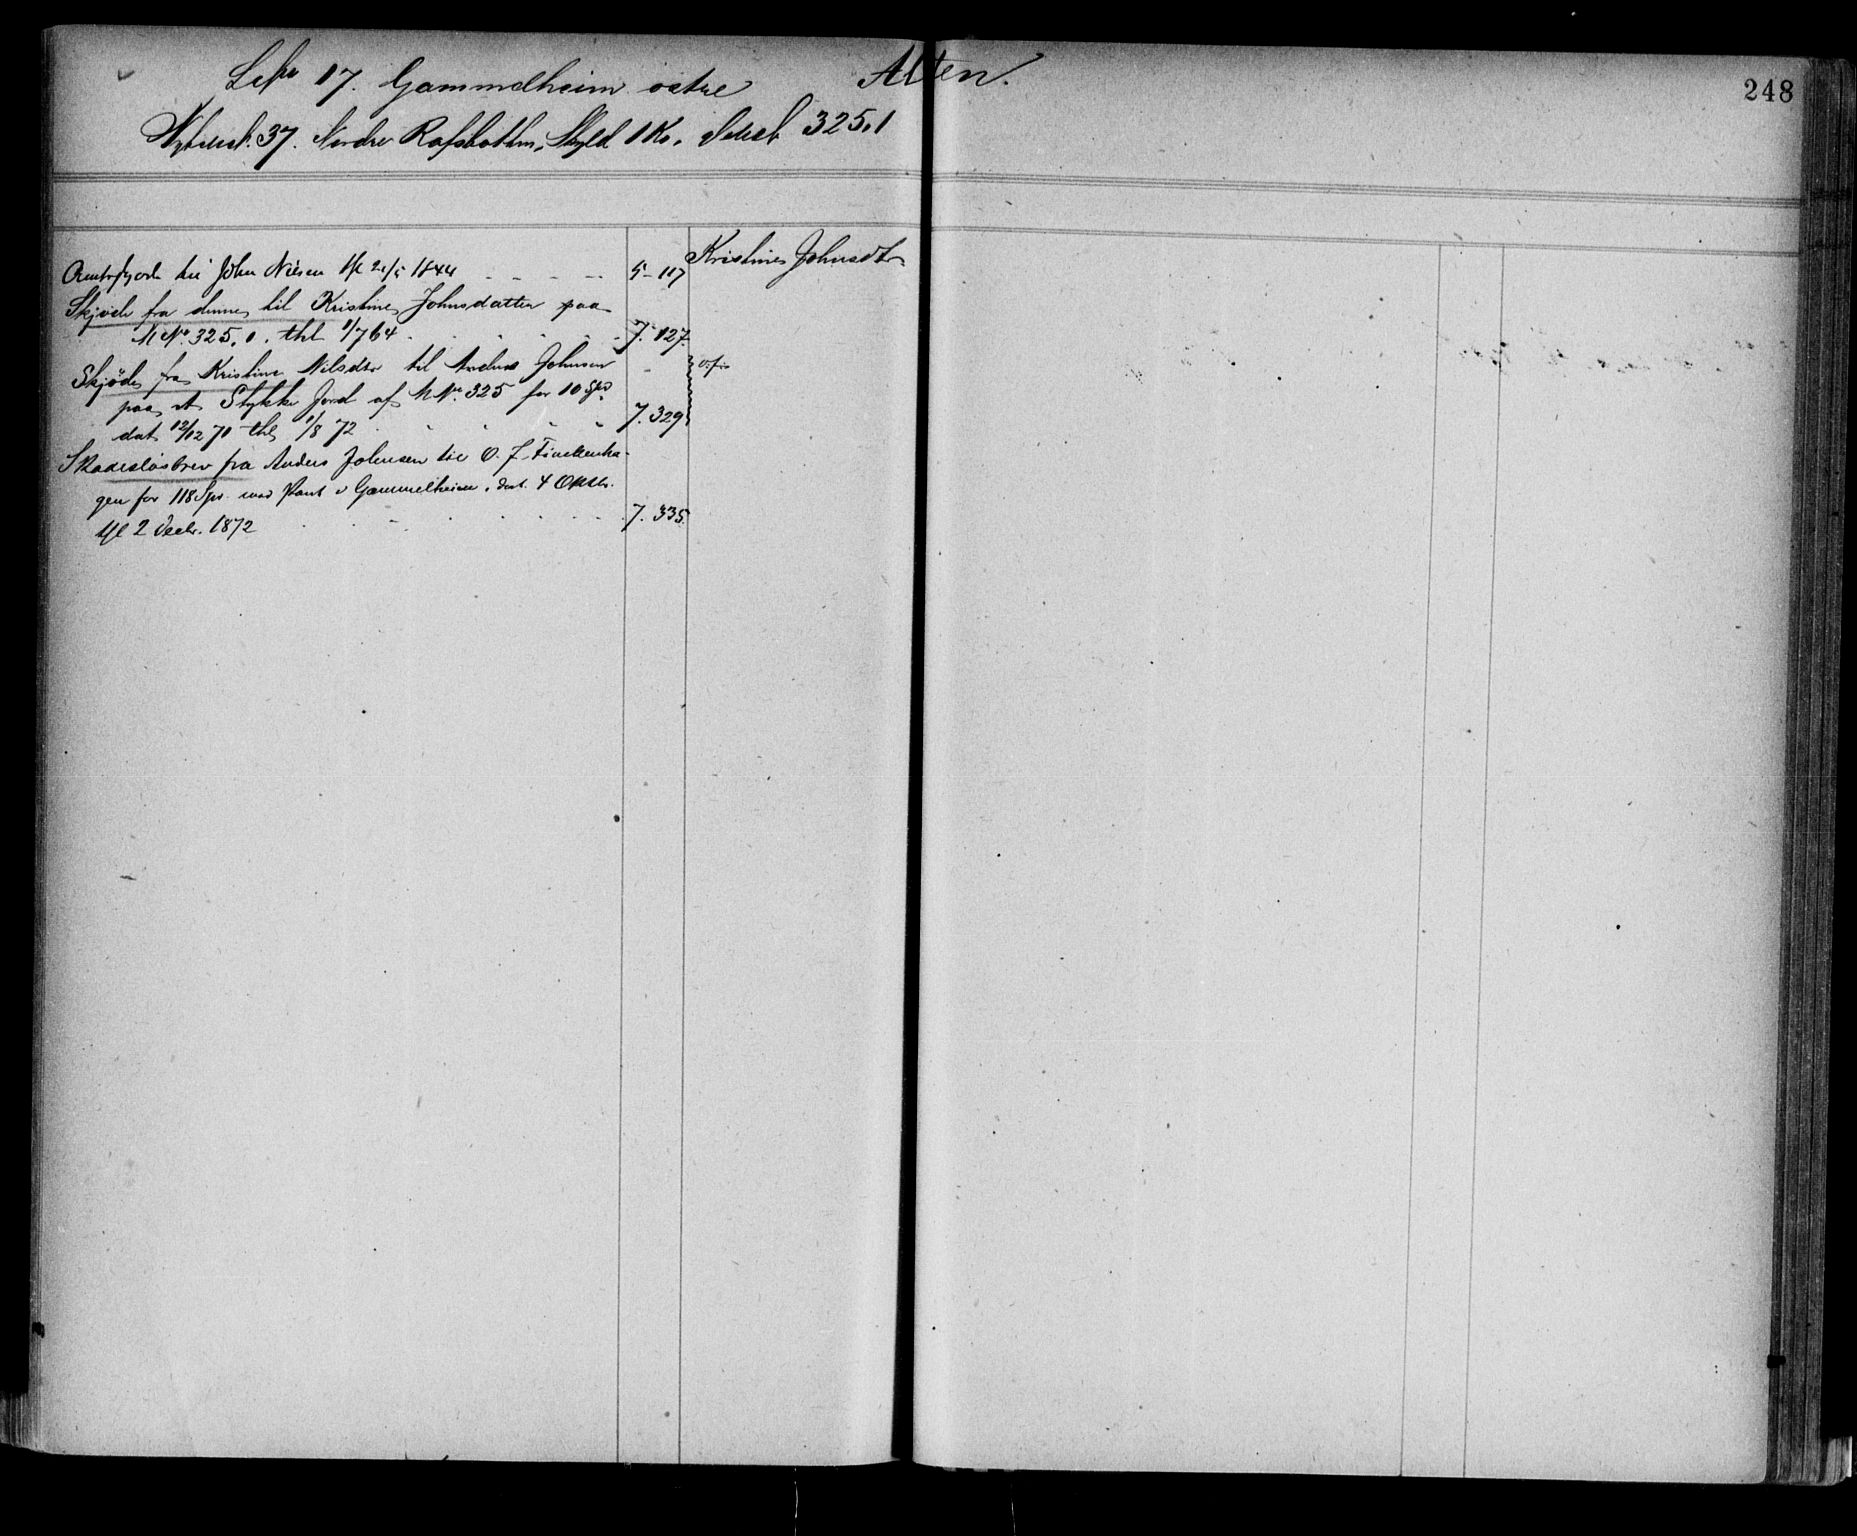 Alten.
248
Løbe 17. Gammelheim østre
Matrikul. 37. Nordre Rafsbotten, Skyld 1 Ko. 325.1
til John Nilsen thl 21/5 1844 5-117
Kristine Johnsdtr
Skjøde fra denne til Kristine Johnsdatter paa
M No. 325.1. thl 1/7 64 7. 127.
Skjøde fra Kristine Nilsdtr til Anders Johnsen
paa et Stykke Jord af M No. 325 for 10 Spd
dat 12/12 70 thl 1/8 72 7. 329
Skadesløsbrev fra Anders Johnsen til O. J. Finckenha-
gen for 118 Spd. med Pant i Gammelheim, dat. 4 Oktbr.
thl 2 Decbr. 1872 7. 335.